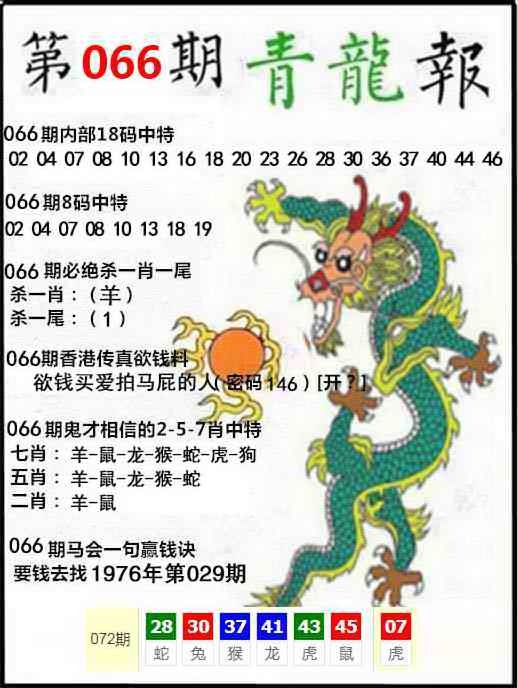 第066期青龍報
066期内部18码中特
02 04 07 08 10 13 16 18 20 23 26 28 30 36 37 40 44 46
066期8码中特
02 04 07 08 10 13 18 19
066期必绝杀一肖一尾
杀一肖：（羊）
杀一尾：（1）
066期香港传真欲钱料
欲钱买爱拍马屁的人（密码146）[开？]
066期鬼才相信的2-5-7肖中特
七肖：羊-鼠-龙-猴-蛇-虎-狗
五肖：羊-鼠-龙-猴-蛇
二肖：羊-鼠
066期马会一句赢钱诀
要钱去找1976年第029期
072期 28 30 37 41 43 45 07
蛇 兔 猴 龙 虎 鼠 虎